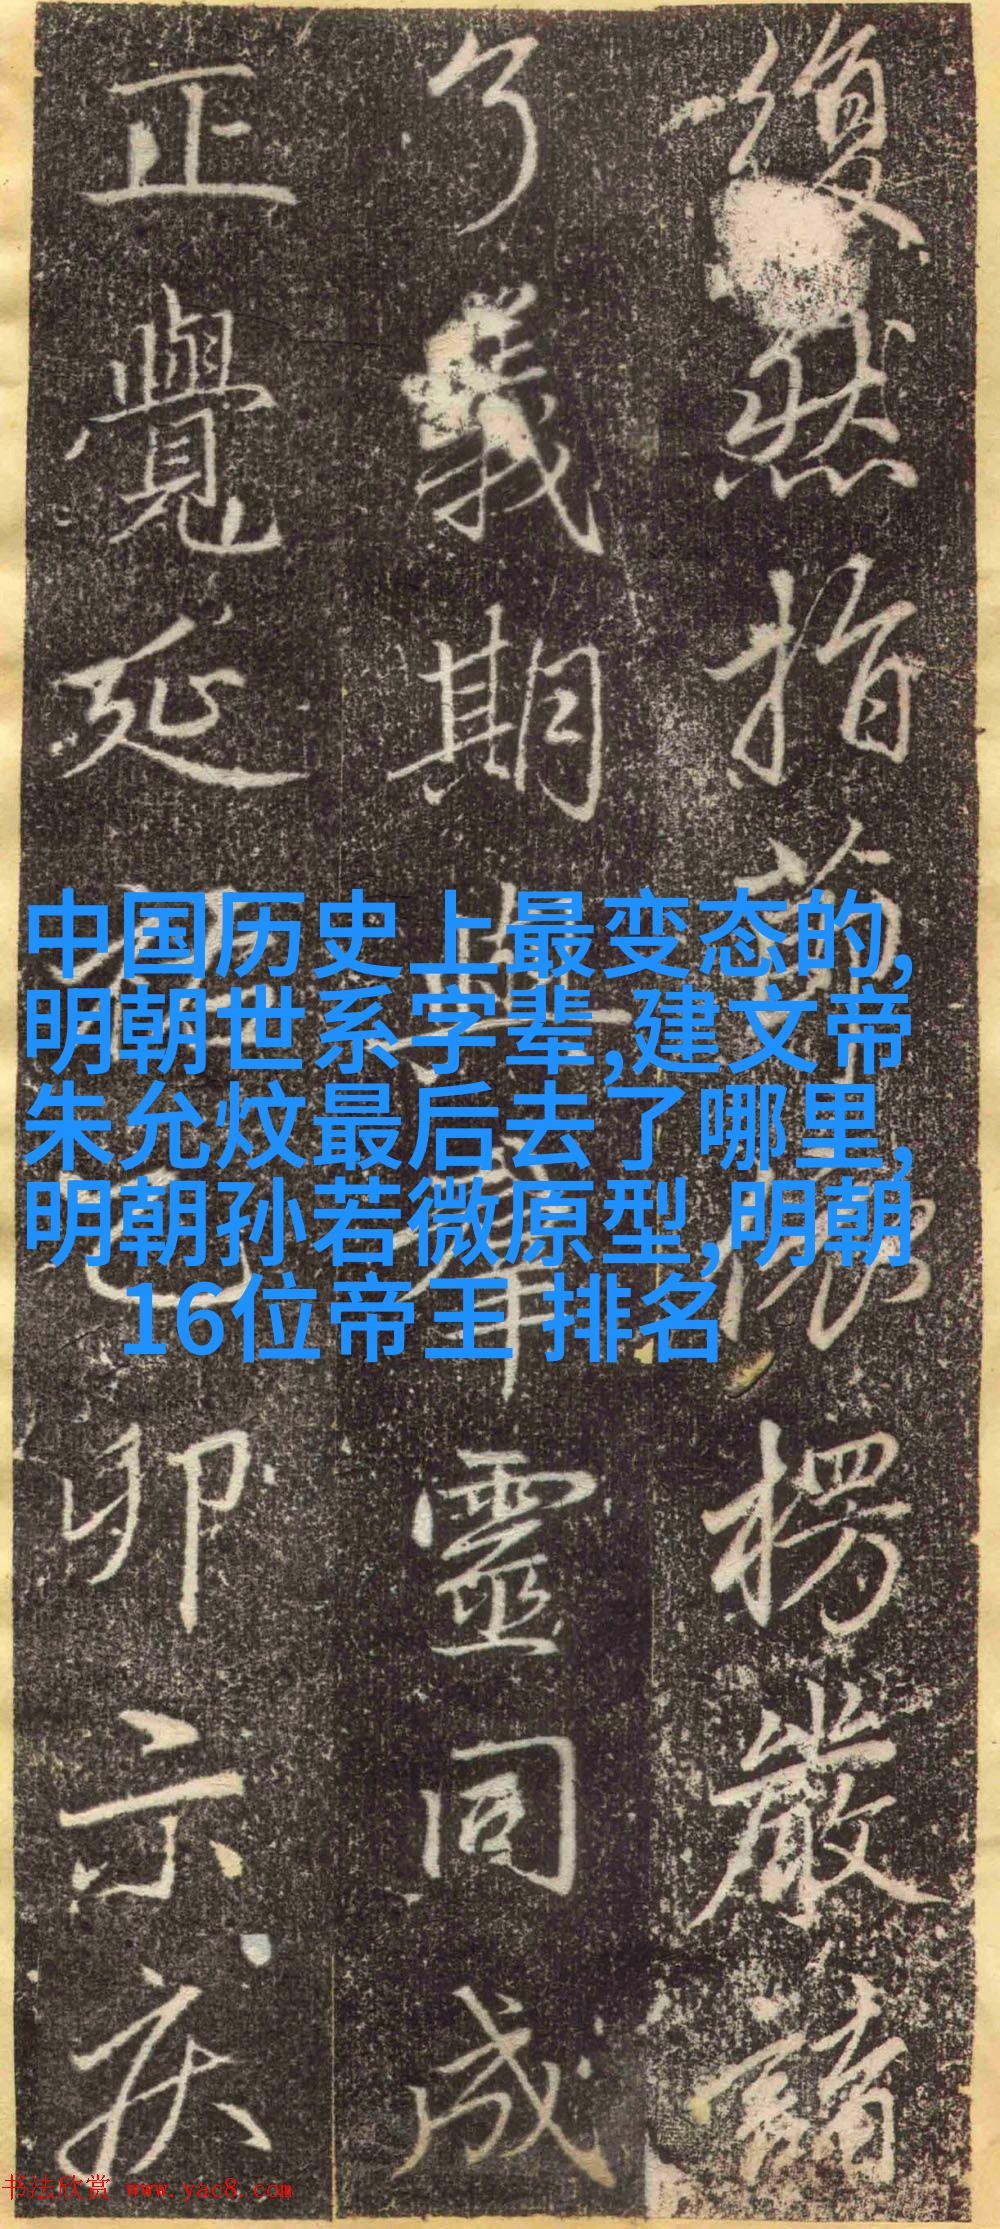 復然指楞嚴諸
了義期與群靈同成
正覺延祐乙卯示疾
中国历史上最变态的,
明朝世系字辈,建文帝
朱允炆最后去了哪里,
明朝孙若微原型,明朝
16位帝王 排名
书法欣赏 www.yac8.com